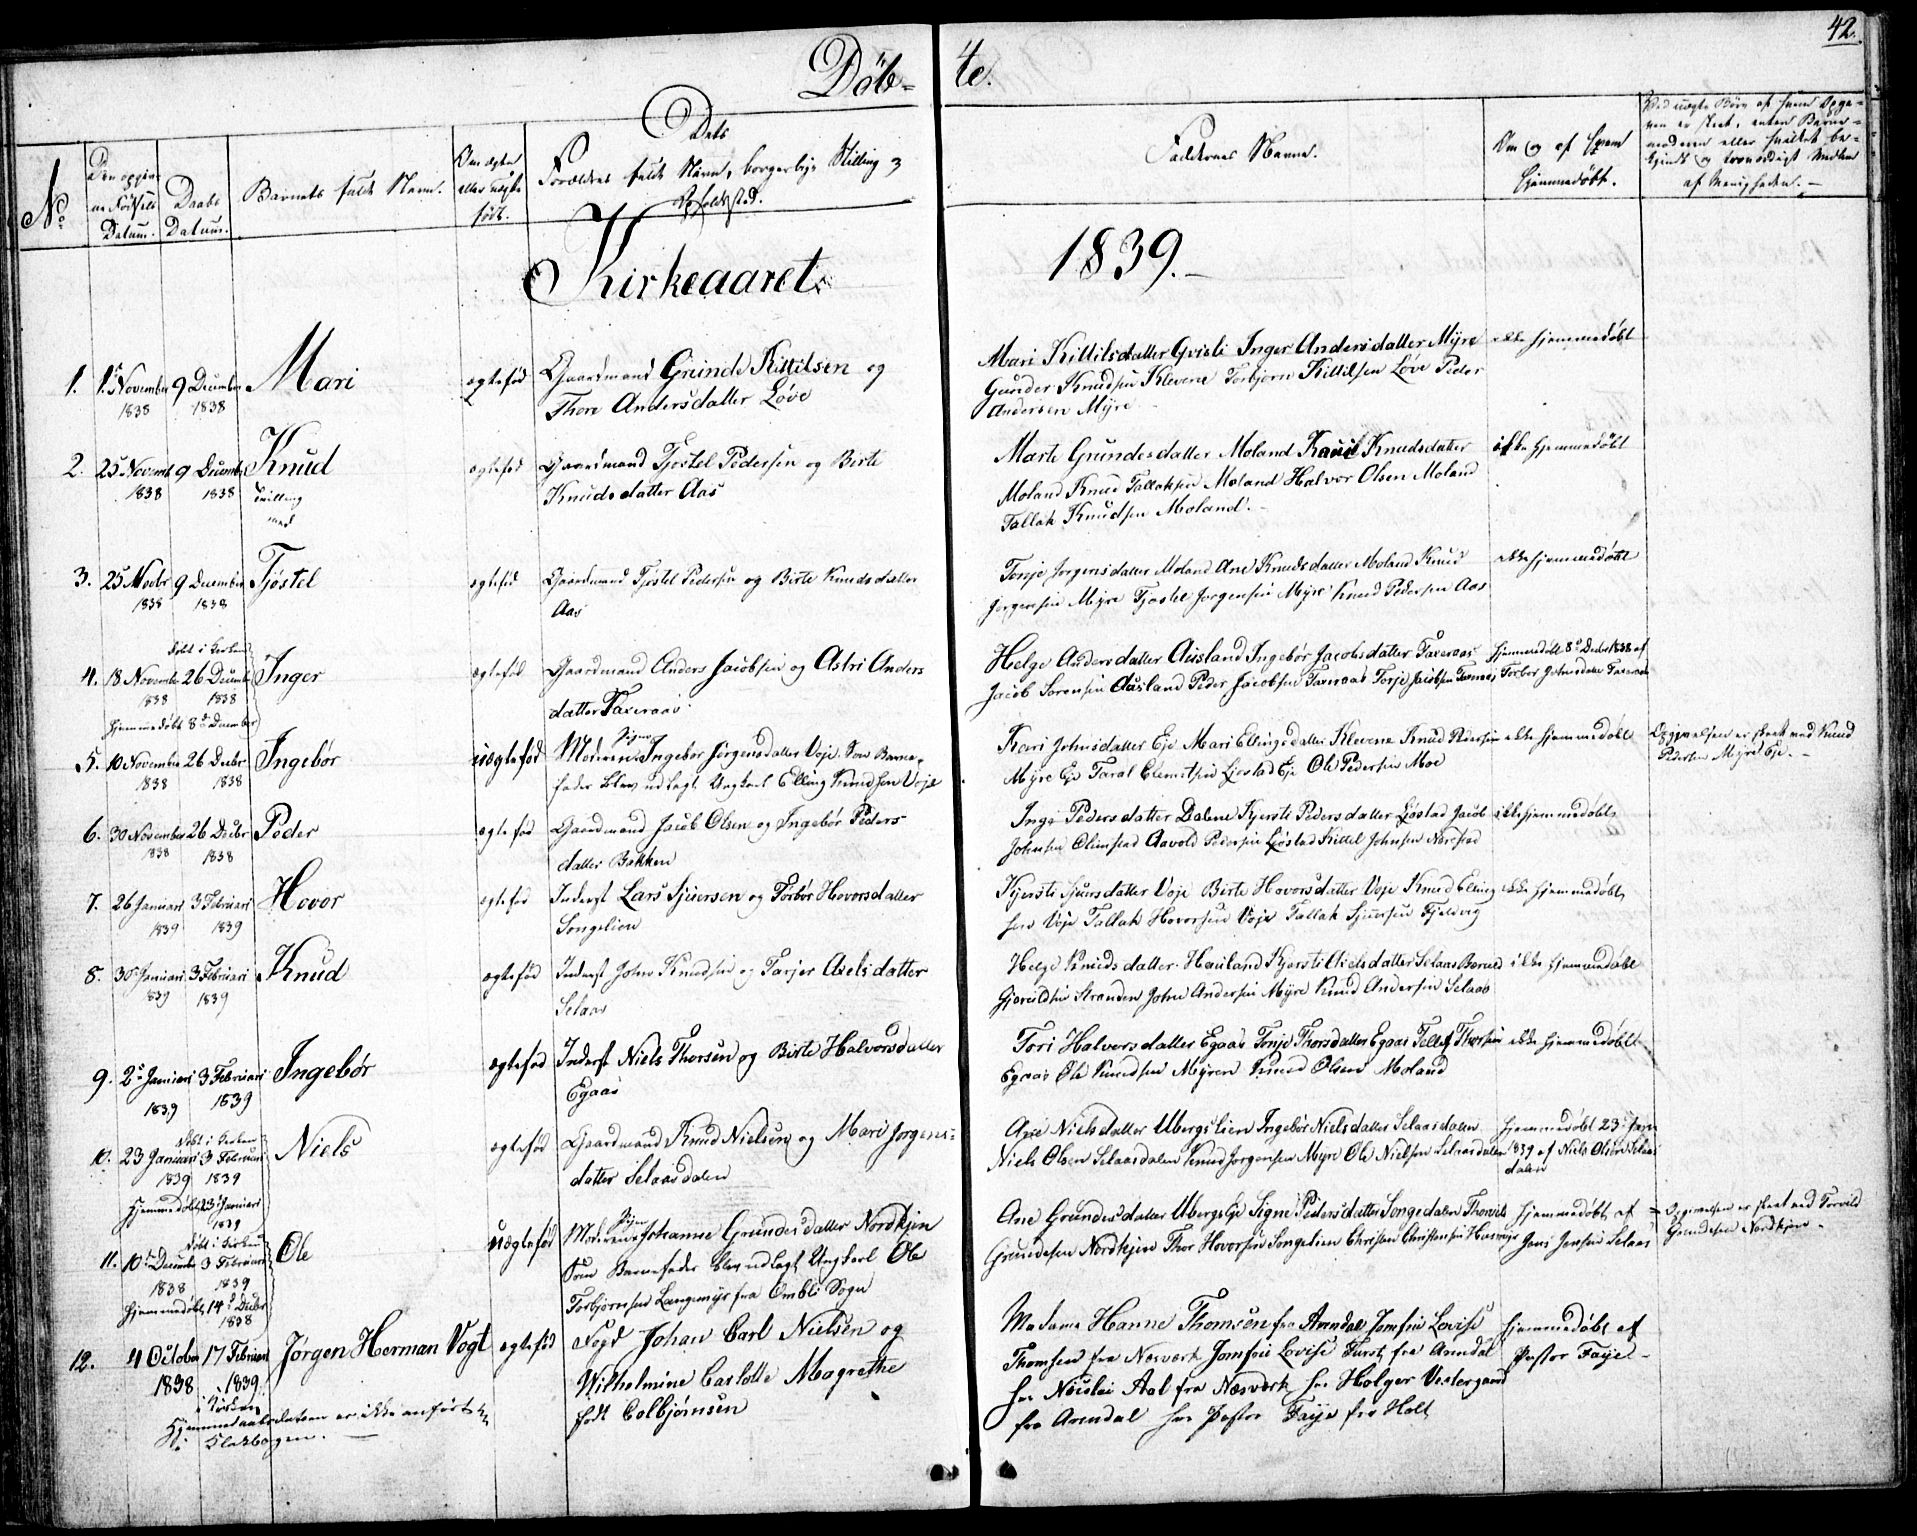 42.
Døb-
te.
No
Den opgivne Fødsels Datum.
Daabs Datum.
Barnets fulde Navn.
Om ægte eller uægte født.
Dets
Forældres fulde Navn, borgerlige Stilling og
Opholdssted.
Faddernes Navne.
Om og af hvem
hjemmedøbt.
Kirkeaaret
1839.
1. 1ste November 9 December Mari ægtefød Gaardmand Grunde Kittilsen og
1838 1838 Thore Andersdatter Løve
Mari Kittilsdatter Inger Andersdatter Myre ikke hjemmedøbt
Gunder Knudsen Klevene Torbjørn Kittilsen Løve Peder
Andersen Myre
2. 25 Novemb 9 Decemb Knud ægtefød Gaardmand Tjøstel Pedersen og Birte
1838 1838 Tvilling Knudsdatter Aas
med
Marte Grundesdatter Moland Knudsdatter ikke hjemmedøbt
Moland Knud Tallaksen Moland Halvor Olsen Moland
Tallak Knudsen Moland.
3. 25 Novbr 9 December Tjøstel ægtefød Gaardmand Tjøstel Pedersen og Birte Knudsdatter
1838 1838 Aas
Tonje Jørgensdatter Moland Ane Knudsdatter Moland Knud ikke hjemmedøbt
Jørgensen Myre Tjøstel Jørgensen Myre Knud Pedersen Aas
Døbt i Kirken
4. 18 November 26 Decemb Inger ægtefød Gaardmand Anders Jacobsen og Astri Anders
1838 1838 datter Faxeraas
hjemmedøbt 8de December
Helge Andersdatter Ausland Ingebør Jacobsdatter Faxeraas hjemmedøbt 8de Decbr 1838 af
Jacob Sørensen Ausland Peder Jacobsen Faxeraas Torje Jacobsen Faxeraas Torbor Johnsdatter Faxeraas
5. 10 November 26 Decbr Ingebør uægtefød Moderen Pigen Ingebor Jørgensdatter Voje Som Barne-
1838 1838 fader blev udlagt Ungkarl Elling Knudsen Voje
Kari Johnsdatter Eje Mari Ellingsdatter Klevene Knud Pedersen ikke hjemmedøbt Opgivelsen er skeet ved Knud
Myre Eje Taral Clemetsen Ljøstad Eje Ole Pedersen Moe Pedersen Myre Eje.
6. 30 November 26 Decbr Peder ægtefød Gaardmand Jacob Olsen og Ingebør Peders-
1838 1838 datter Bakken
Inge Pedersdatter Dalene Kjersti Pedersdatter Ljøstad Jacob ikke hjemmedøbt
Johnsen Olimstad Aavold Pedersen Ljøstad Kittel Johnsen Nærestad
7. 26 Januari 3 Februari Hovor ægtefød Inderst Lars Sjursen og Torbør Hovorsdatter
1839 1839 Songelien
Kjersti Sjursdatter Voje Birte Hovorsdatter Voje Knud Elling ikke hjemmedøbt
sen Voje Tallak Hovorsen Voje Tallak Sjursen Fjeldvig
8. 30 Januari 3 Februari Knud ægtefød Inderst John Knudsen og Tarjer Axelsdatter
1839 1839 Selaas
Helge Knudsdatter Hauland Kjersti Nielsdatter Selaas Berne ikke hjemmedøbt
Gjeruldsen Stranden John Andersen Myre Knud Andersen Selaas
9. 2de Januari 3 Februari Ingebør ægtefød Inderst Niels Thorsen og Birte Halvorsdatter
1839 1839 Egaas
Tori Halvorsdatter Egaas Tonje Thorsdatter Egaas Tellef Thorsen ikke hjemmedøbt
Egaas Ole Knudsen Myren Knud Olsen Moland
Døbt i Kirken
10. 23 Januari 3 Februari Niels ægtefød Gaardmand Knud Nielsen og Mari Jørgens-
1839 1839 datter Selaasdalen
Hjemmedøbt 23 Januari
1839
Ane Nielsdatter Ubergslien Ingebør Nielsdatter Selaasdalen hjemmedøbt 23de Janu
Niels Olsen Selaasdalen Knud Jørgensen Myre Ole Nielsen Selaasdalen 1839 af Niels Olsen Selaas
dalen
Døbt i Kirken
11. 10de December 3 Februari Ole uægtefød Moderen Pigen Johanne Grundesdatter Nordkjen
1838 1839 Som Barnefader blev udlagt Ungkarl Ole
Hjemmedøbt 14de Decbr Torbjørnsen Langemyr fra Ombli Sogn
1838
Ane Grundesdatter Ubergs Eje Signe Pedersdatter Songedalen Thorvil hjemmedøbt af Opgivelsen er skeet ved Torvild
Grundesen Nordkjen Thor Hovorsen Songelien Christen Christensen Jens Jensen Selaas Grundesen Nordkjen
12. 4 October 17 Februari Jørgen Herman Vogt ægtefød Fogd Johan Carl Nielsen og
1838 1839 Wilhelmine Carlotte Magrethe
i Kirken født Colbjørnsen
Hjemmedaabsdatoen er ikke anført
i Klokbogen.
Madame Hanne Thomsen fra Arendal Jomfru Lovise hjemmedøbt af
Thomsen fra Nesverk Jomfru Lovise Furst fra Arendal Pastor Faye
hr Nicolai Aal fra Næsværk hr Holger Vestergaard
fra Arendal hr Pastor Faye fra Holt